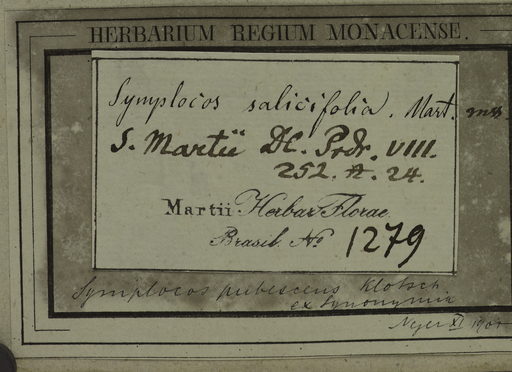 HERBARIUM REGIUM MONACENSE.
Symplocos salicifolia. Mart. ms.
S. Martii DC. Prdr. VIII.
252. n. 24.
Martii Herbar. Florae
Brasil. No 1279
Symplocos pubescens Klotsch
ex synonymia
XI